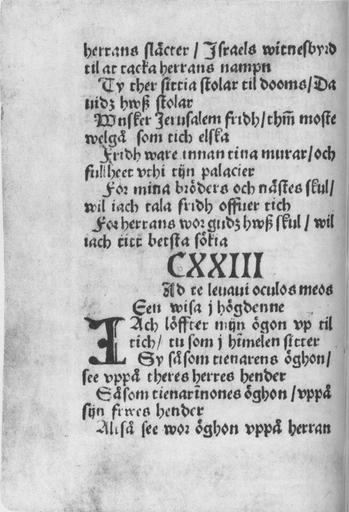 herrans slächter / Israels witnesbyrd
til at tacka herrans nampn
Ty ther sittia stolar til dooms / Da
uidz hwß stolar
Wnsker Jerusalem fridh / thm̄ moste
welgå som tich elska
Fridh ware innan tina murar / och
fulheet vthi tijn palacier
For mina bröders och nästes skul /
wil iach tala fridh offuer tich
For herrans wor gudz hwß skul / wil
iach titt betsta sökia
CXXIII
Ad te leuaui oculos meos
Een wisa j högdenne
IAch löffter mijn ögon vp til
tich / tu som j him̄elen sitter
Sy såsom tienarens öghon /
see vppå theres herres hender
Såsom tienarinnones öghon / vppå
sijn frwes hender
Altså see wor öghon vppå herran